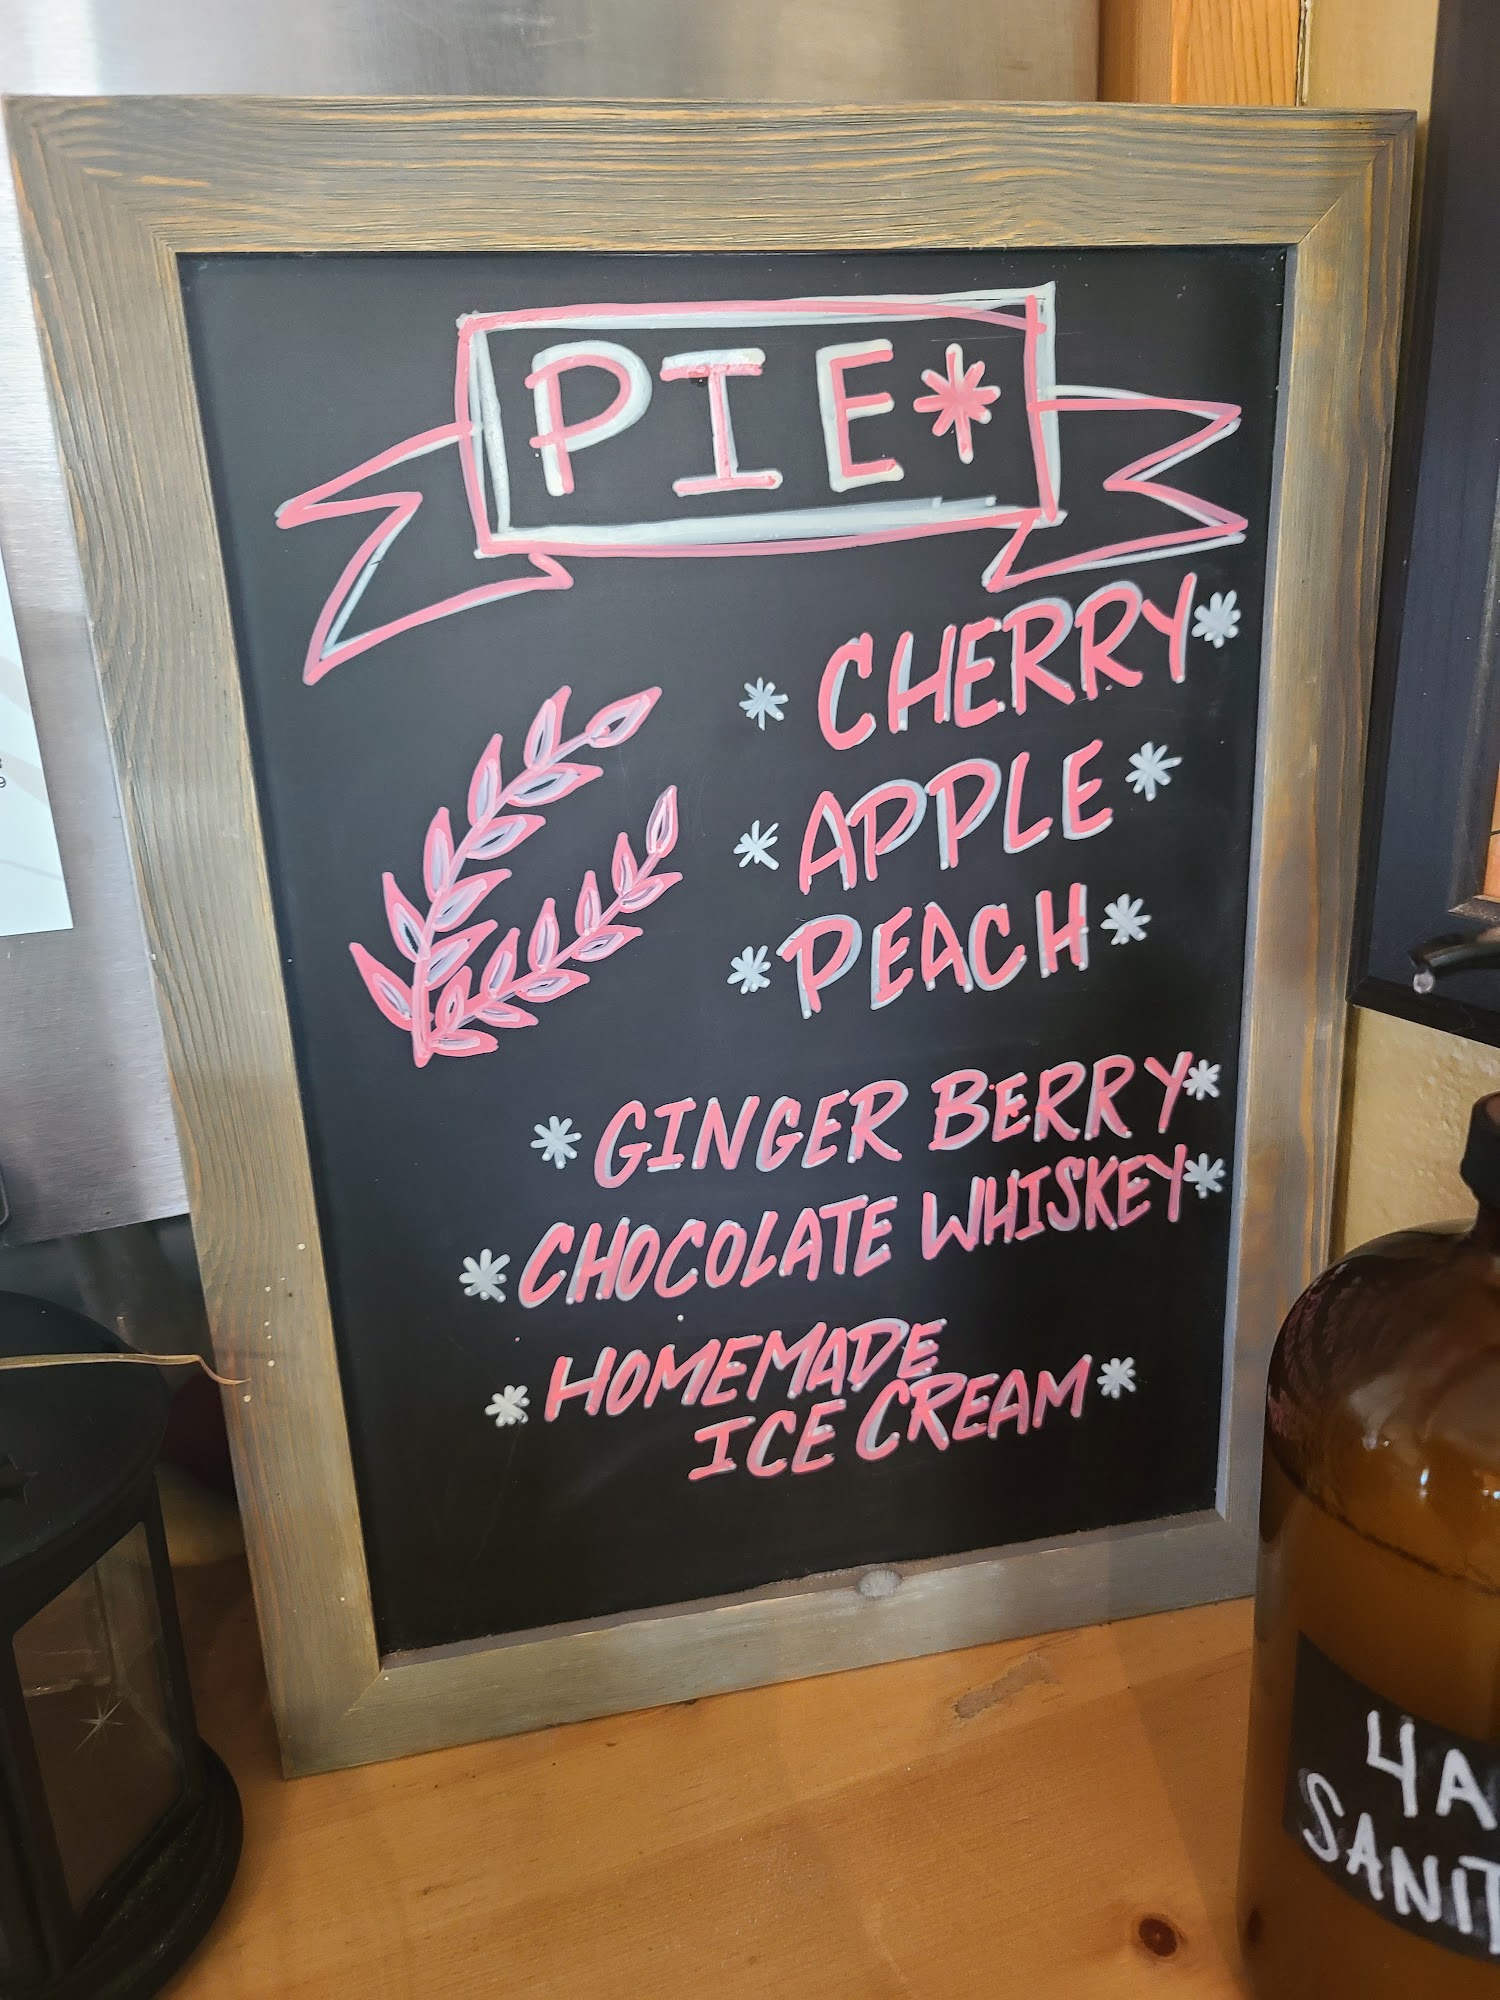 PIE*
* CHERRY *
* APPLE *
* PEACH *
* GINGER BERRY *
* CHOCOLATE WHISKEY *
* HOMEMADE
ICE CREAM *
SANIT